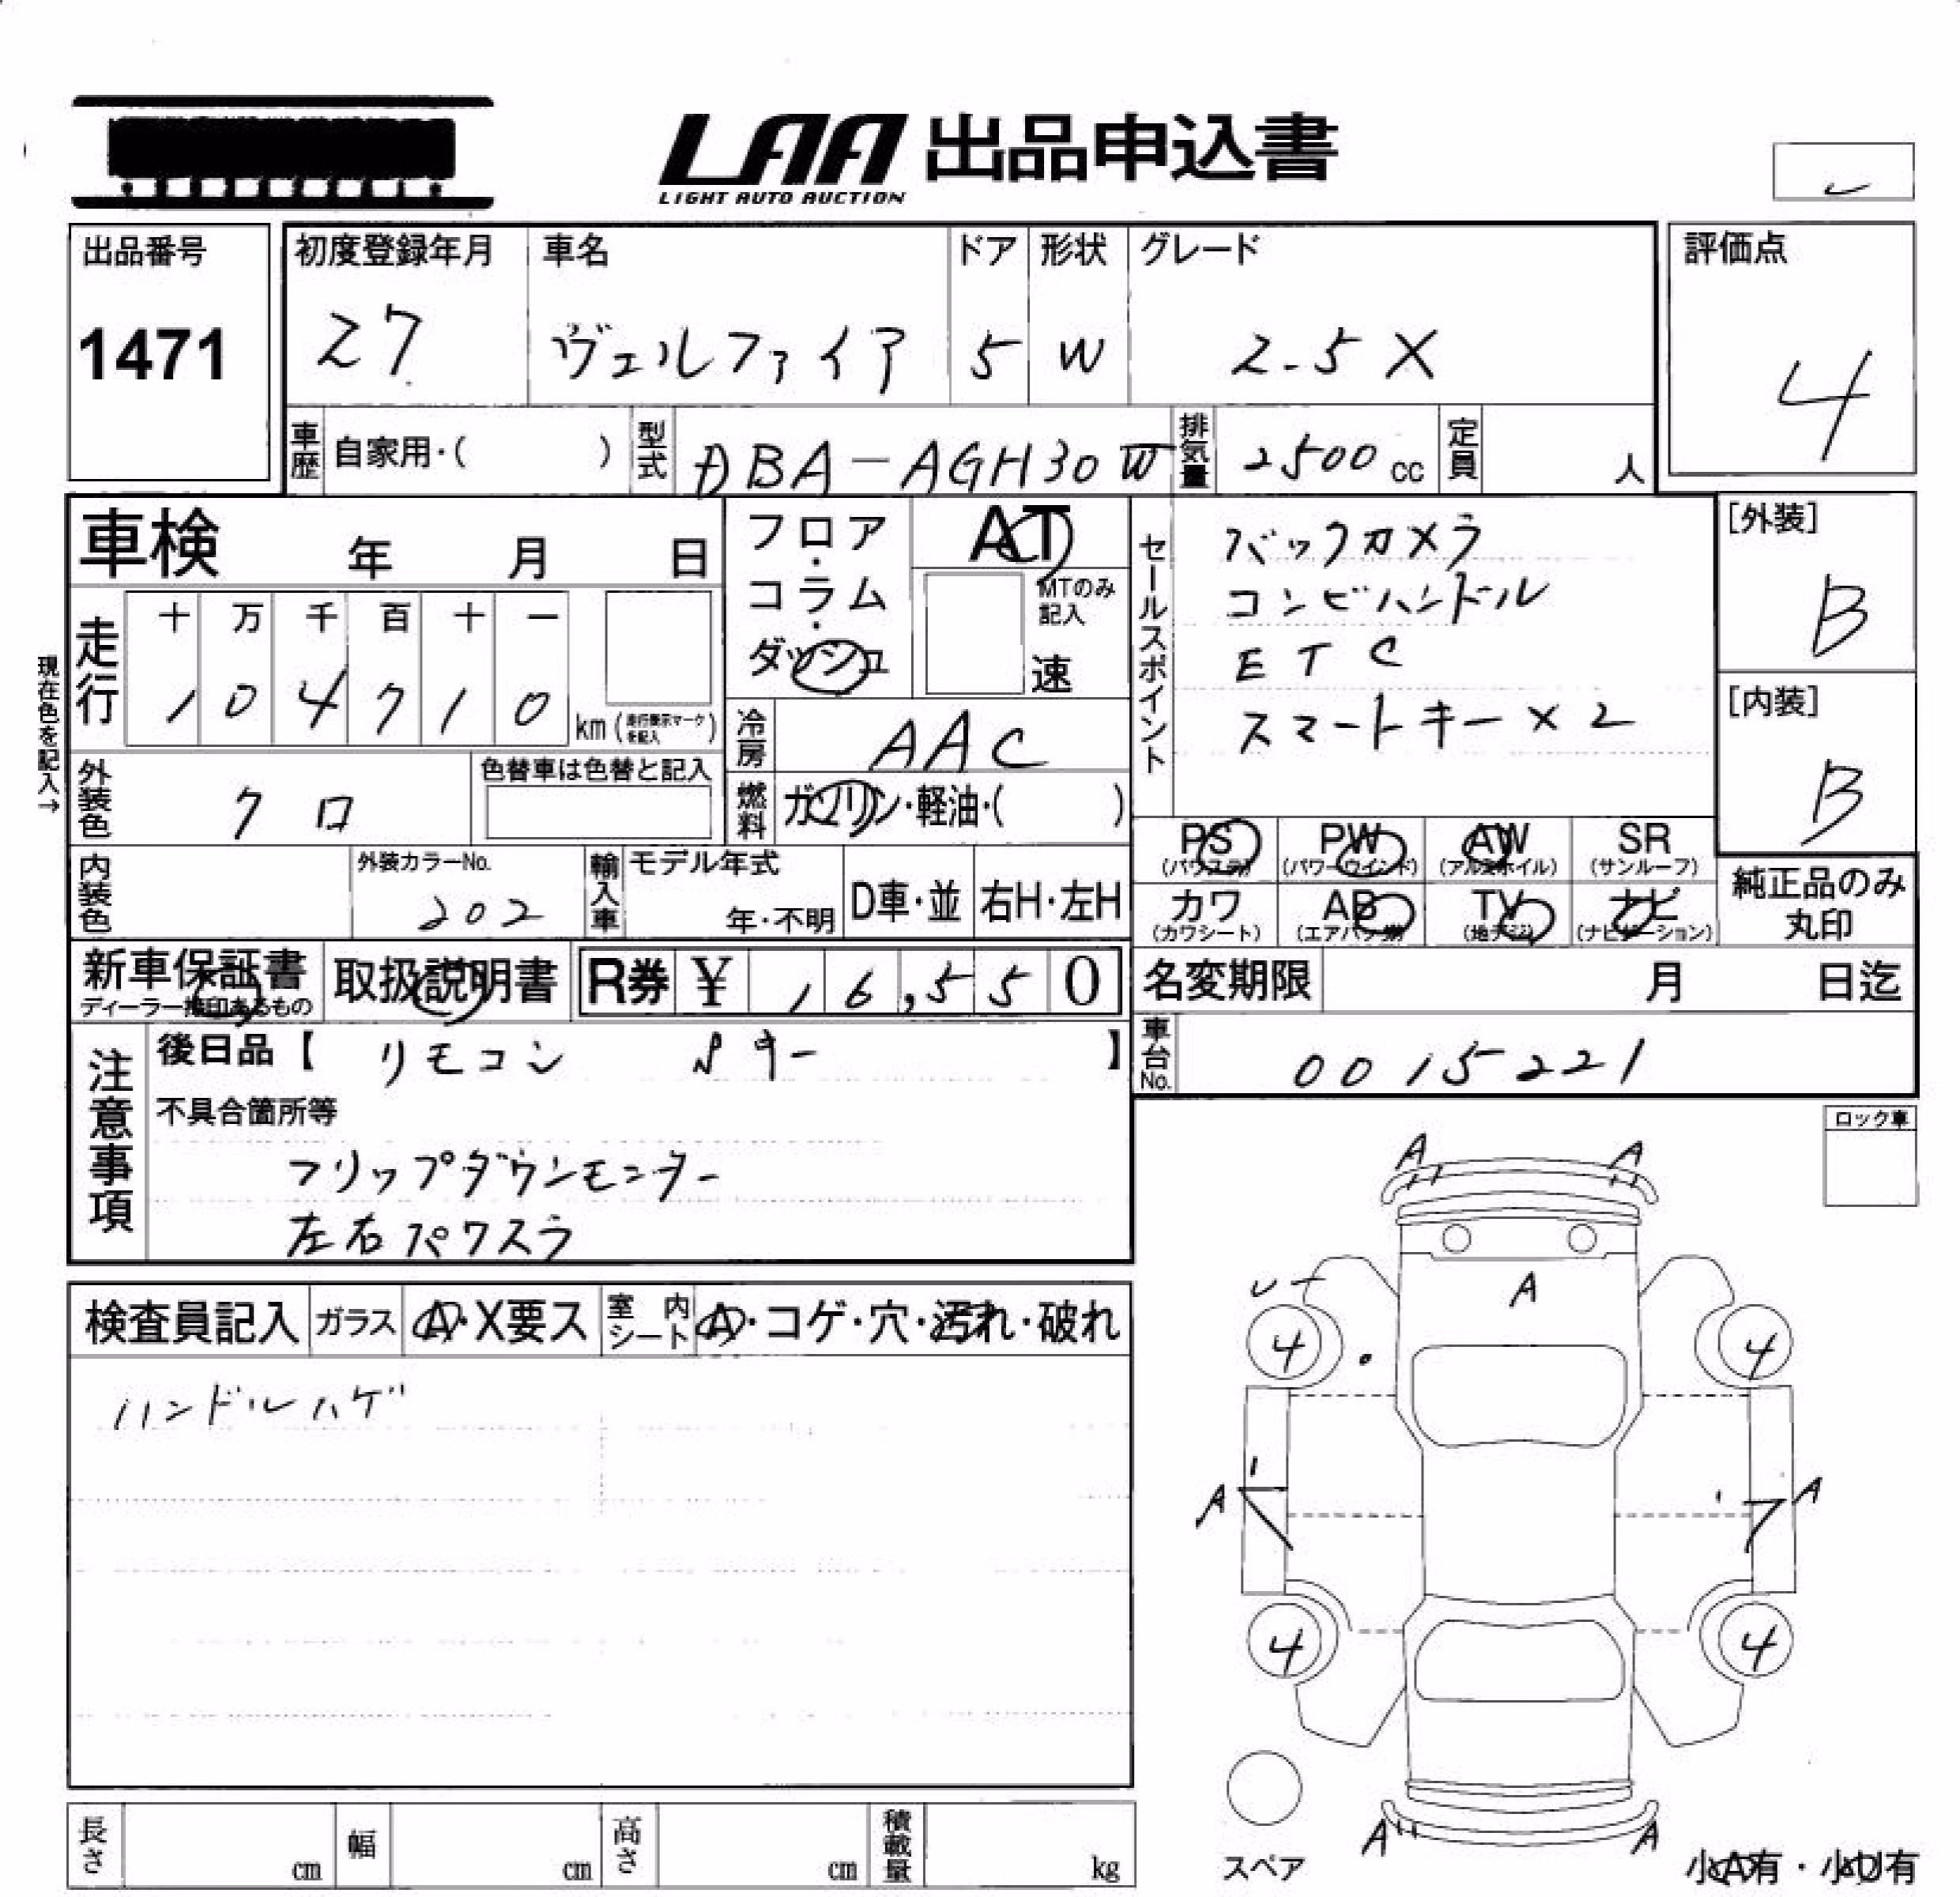 LAA 出品申込書
LIGHT AUTO AUCTION
出品番号
1471
初度登録年月
27
車名
ヴェルファイア
ドア
5
形状
W
グレード
2.5X
評価点
4
車歴 自家用・( )
型式 DBA-AGH30W
排気量 2500 cc
定員 人
車検 年 月 日
フロア・コラム・ダッシュ
AT
MTのみ記入
速
セールスポイント
バックカメラ
コンビハンドル
ETC
スマートキー×2
[外装]
B
[内装]
B
現在色を記入→
走行
十 万 千 百 十 一
1 0 4 7 1 0 km (走行表示マークを記入)
冷房 AAC
外装色 クロ
色替車は色替と記入
燃料 ガソリン・軽油・( )
PS PW AW SR
(パワステ) (パワーウインド) (アルミホイル) (サンルーフ)
内装色
外装カラーNo.
202
輸入車 モデル年式
年・不明
D車・並 右H・左H
カワ AB TV ナビ
(カワシート) (エアバッグ) (地デジ) (ナビゲーション)
純正品のみ
丸印
新車保証書
ディーラー押印あるもの
取扱説明書
R券 ¥ 16,550
名変期限 月 日迄
注意事項
後日品【 リモコン キー 】
車台No. 0015221
不具合箇所等
フリップダウンモニター
左右パワスラ
ロック車
検査員記入 ガラス A・X要ス 室内シート A・コゲ・穴・汚れ・破れ
ハンドルハゲ
A A
A
4 4
A A
4 4
A A
スペア
小A有・小U有
長さ cm 幅 cm 高さ cm 積載量 kg